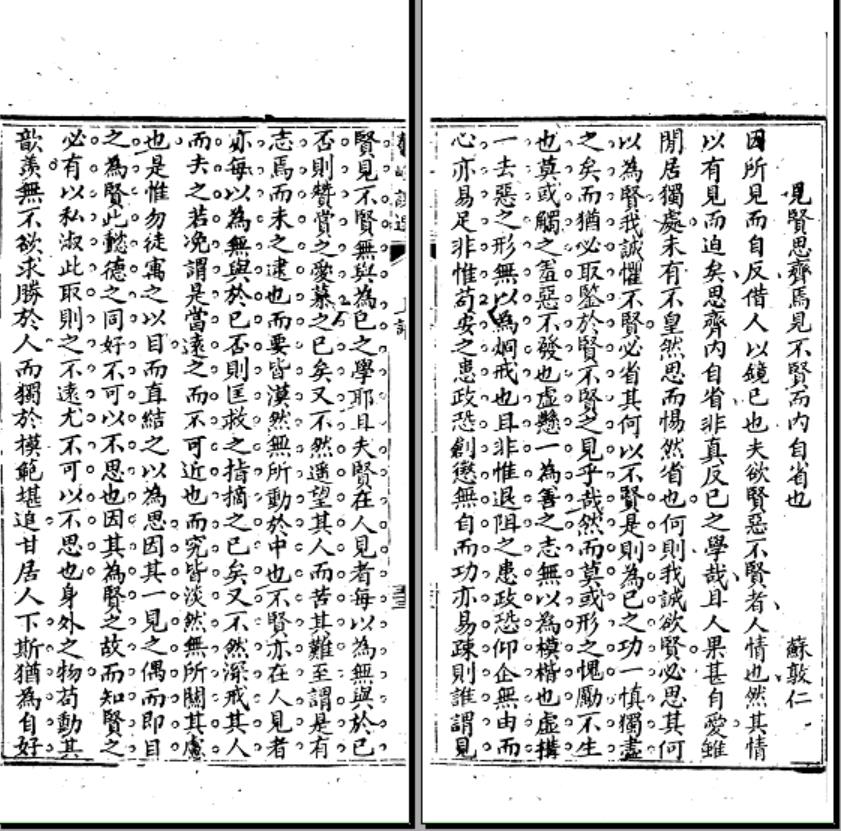 見賢思齊焉見不賢而內自省也 蘇敦仁
因所見而自反借人以鏡己也夫欲賢惡不賢者人情也然其情
以有見而迫矣思齊內自省非真反己之學哉且人果甚自愛雖
閒居獨處未有不皇然思而惕然省也何則我誠欲賢必思其何
以為賢我誠懼不賢必省其何以不賢是則為己之功一慎獨盡
之矣而猶必取鑒於賢不賢之見乎哉然而莫或形之愧勵不生
也莫或觸之羞惡不發也虛懸一為善之志無以為模楷也虛搆
一去惡之形無以為炯戒也且非惟退阻之患政恐仰企無由而
心亦易足非惟苟安之患政恐創懲無自而功亦易疎則誰謂見
賢見不賢無與為己之學耶且夫賢在人見者每以為無與於己
否則贊賞之愛慕之已矣又不然遥望其人而苦其難至謂是有
志焉而未之逮也而要皆漠然無所動於中也不賢亦在人見者
亦每以為無與於己否則匡救之指摘之已矣又不然深戒其人
而夫之若浼謂是當遠之而不可近也而究皆淡然無所關其慮
也是惟勿徒寓之以目而直結之以為思因其一見之偶而即目
之為賢此懿德之同好不可以不思也因其為賢之故而知賢之
必有以私淑此取則之不遠尤不可以不思也身外之物苟動其
歆羨無不欲求勝於人而獨於模範堪追甘居人下斯猶為自好